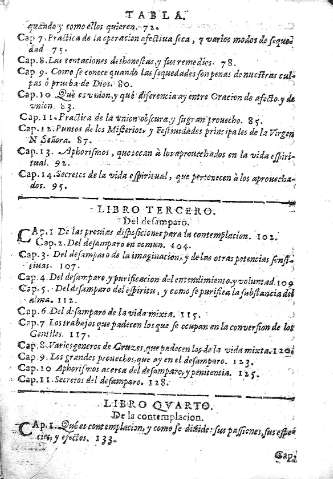 TABLA.
quando y como ellos quieren. 72.
Cap. 7. Practica de la operacion afectiua seca, y varios modos de seque
dad 75.
Cap. 8. Las tentaciones deshonestas, y sus remedios. 78.
Cap. 9. Como se conoce quando las sequedades son penas de nuestras cul-
pas ò prueba de Dios. 80.
Cap. 10. Que es vnion, y què diferencia ay entre Oracion de afecto, y de
vnion. 83.
Cap. 11. Practica de la vnion obscura, y su gran prouecho. 85.
Cap. 12. Puntos de los Misterios, y Festiuidades principales de la Virgen
N Señora. 87.
Cap. 13. Aphorismos, que tocan à los aprouechados en la vida espiri-
tual. 92.
Cap. 14. Secretos de la vida espiritual, que pertenecen à los aprouecha-
dos. 95.
LIBRO TERCERO.
Del desamparo.
CAp. 1 De las preuias disposiciones para la contemplacion. 102.
Cap. 2. Del desamparo en comun. 104.
Cap. 3. Del desamparo de la imaginacion, y de las otras potencias sensi-
tiuas. 107.
Cap. 4 Del desamparo, y purificacion del entendimiento, y voluntad. 109
Cap. 5. Del desamparo del espiritu, y como se purifica la substancia del
alma. 112.
Cap. 6 Del desamparo de la vida mixta. 115.
Cap. 7 Los trabajos que padecen los que se ocupan en la conversion de los
Gentiles. 117.
Cap. 8. Varios generos de Cruzes, que padecen los de la vida mixta. 120.
Cap. 9. Los grandes prouechos, que ay en el desamparo. 123.
Cap. 10 Aphorismos acerca del desamparo, y penitencia. 125.
Cap. 11. Secretos del desamparo. 128.
LIBRO QVARTO.
De la contemplacion.
CAp. 1. Què es contemplacion, y como se diuide: sus passiones, sus espe
cies, y efectos. 133.
Cap.